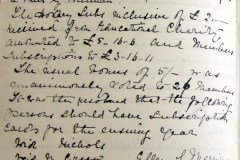 The Honey Subs inclusive of £2.-
received from Educational Charity
amounted to £5.16.6 and Members
Subscriptions to £3-16-11
The usual bonus of 5/- was
unanimously voted to 26 members
It was then resolved that the following
persons should have Subscription
Cards for the ensuing year
Nichols